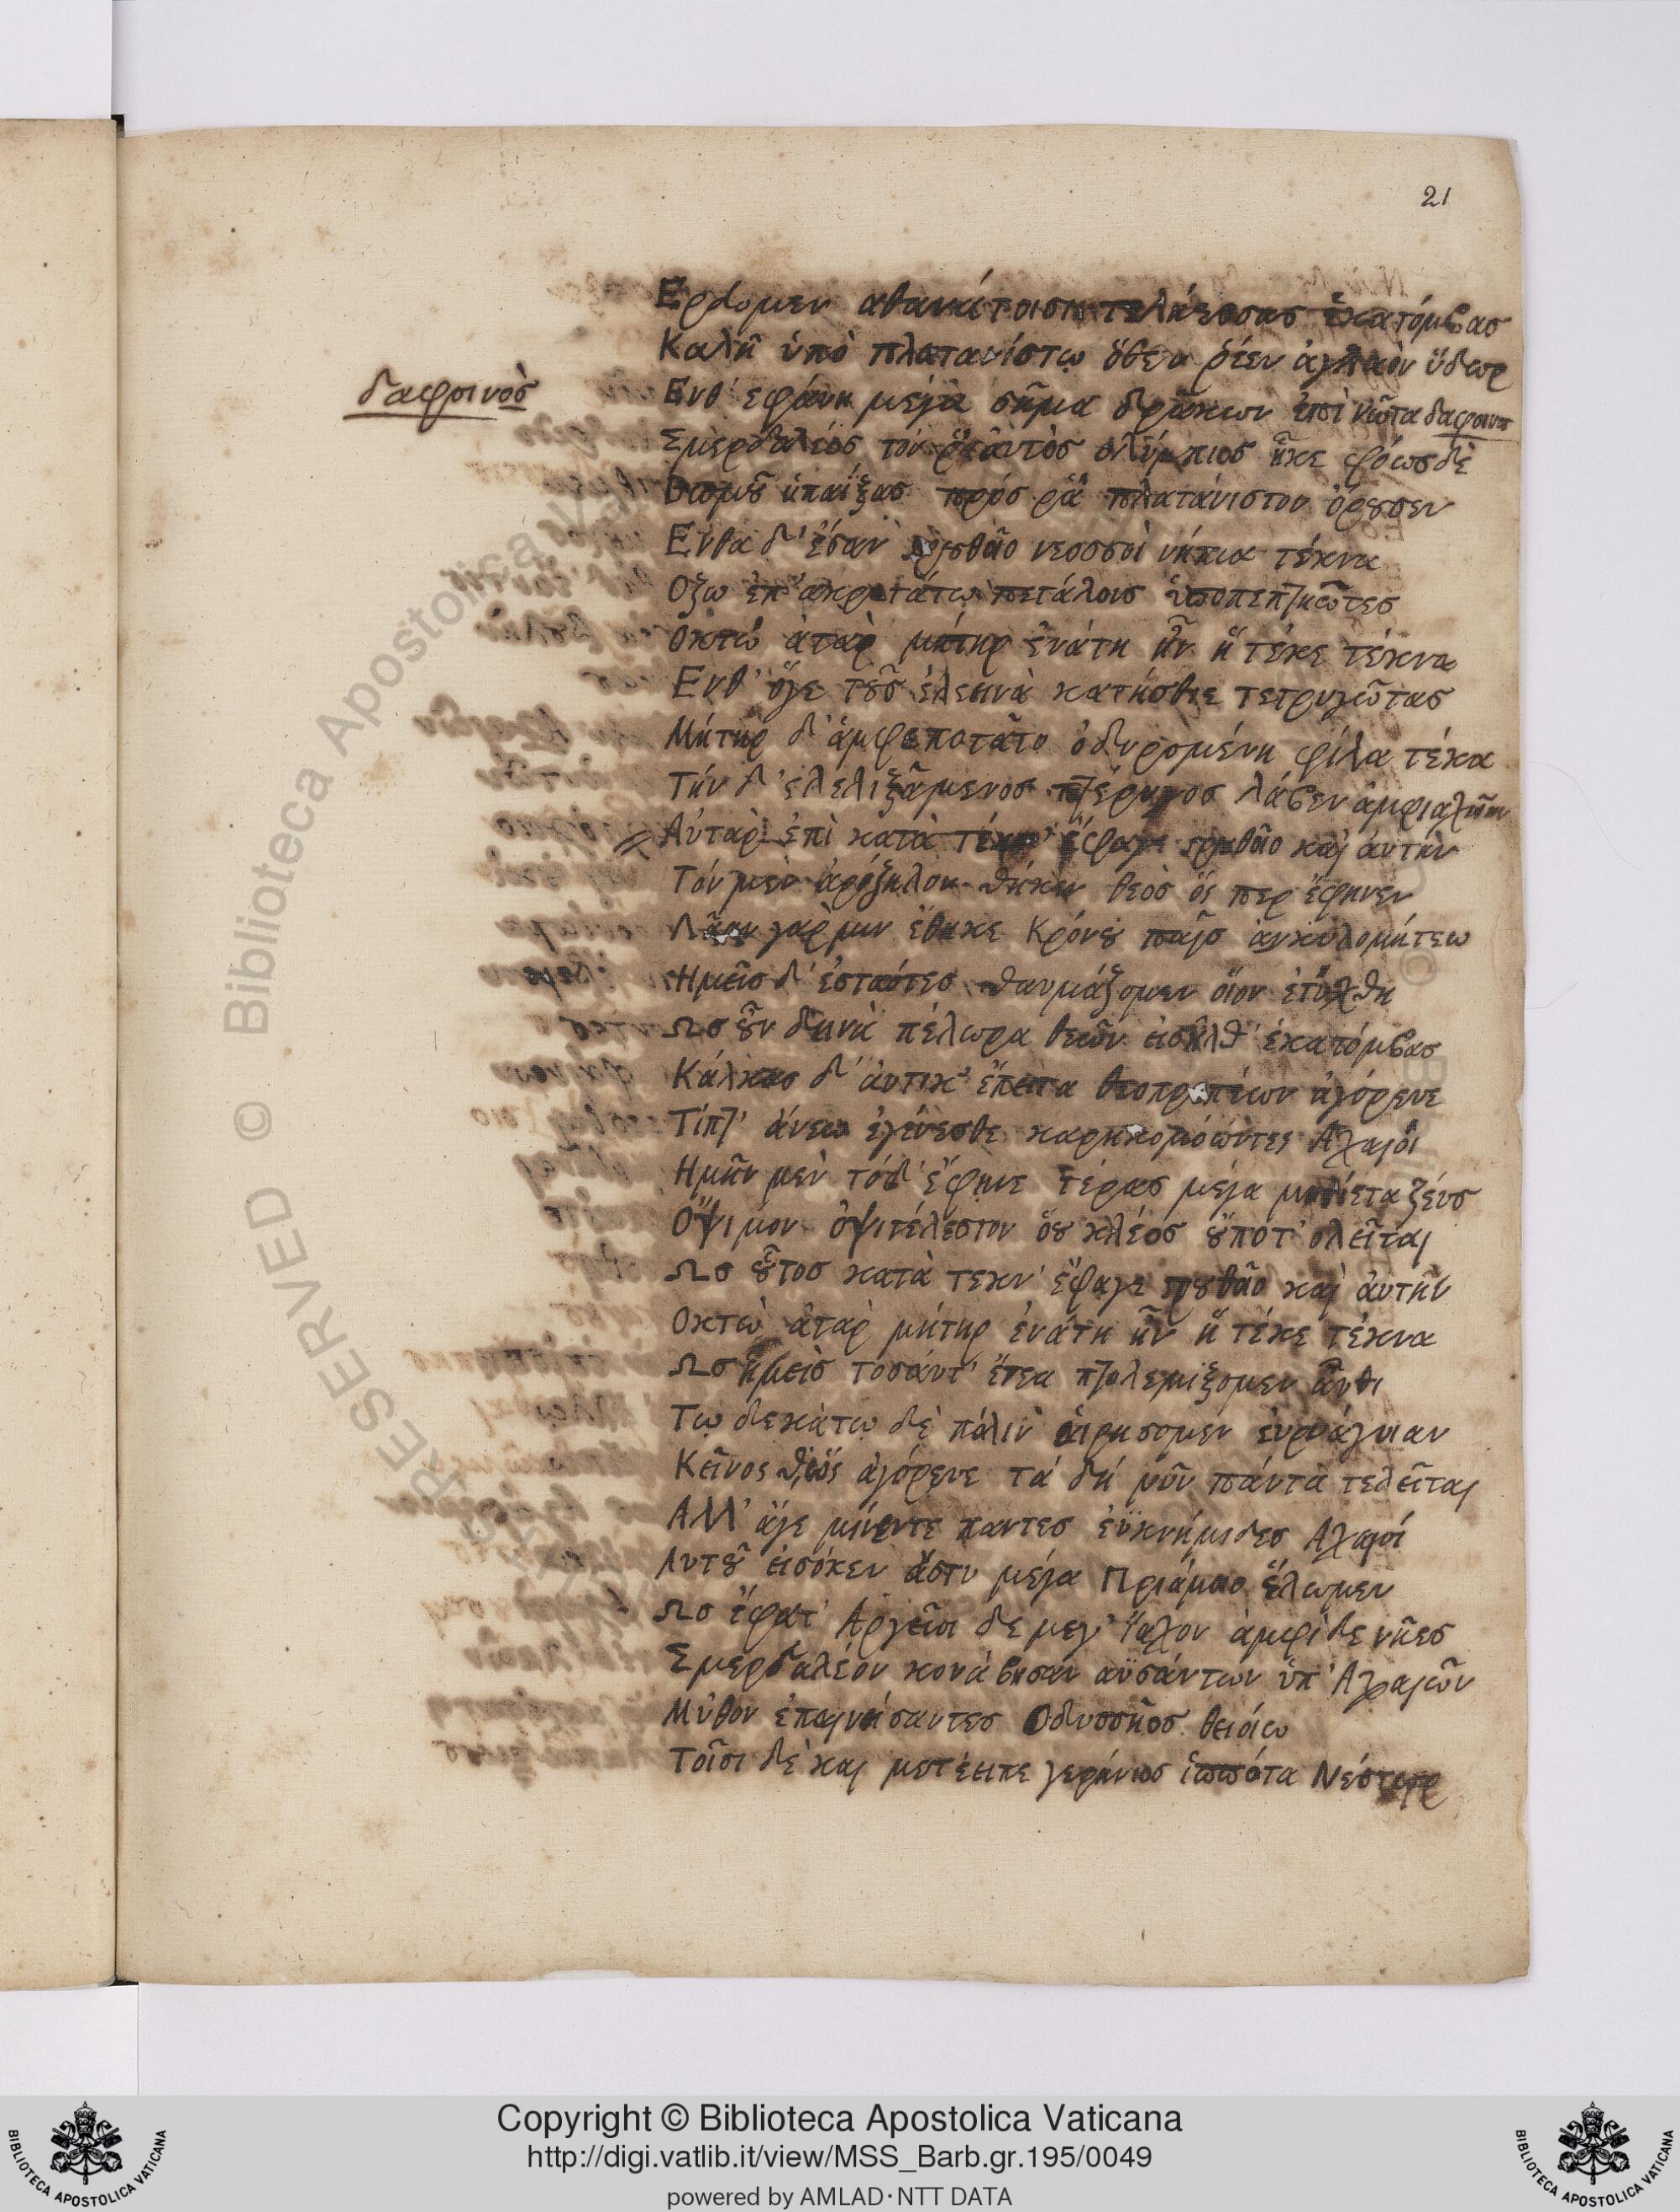 21
Ερδομεν αθανάτοισι τελήεσσας ἑκατόμβας
Καλῆ ὑπὸ πλατανίστῳ ὅθεν ῥέεν ἀγλαὸν ὕδωρ
δαφοινὸς
Ενθ' εφάνη μέγα σῆμα δράκων ἐπὶ νῶτα δαφοινὸς
Σμερδαλέος τόν ῥ' ἀυτὸς ολύμπιος ἧκε φόωσδε
Βωμοῦ ὑπαΐξας πρός ρἁ πλατάνιστον όρουσεν
Ενθα δ' ἔσαν στρουθοῖο νεοσσοὶ νήπια τέκνα
Οζω ἐπ' ἀκροτάτω πετάλοις ὑποπεπτηῶτες
Οκτώ ἀταρ μήτηρ ἐνάτη ἦν ἥ τέκε τέκνα
Ενθ' ὅγε τοῦς ἐλεεινὰ κατήσθιε τετριγῶτας
Μήτηρ δ' ἀμφεποτᾶτο ὀδυρομένη φίλα τέκα
Τήν δ' ελελιξάμενος πτέρυγος λάβεν ἀμφιαχυῖαν
Αὐταρ ἐπὶ κατὰ τέκν' ἔφαγε στρουθοῖο καὶ ἀυτήν
Τόν μὲν ἀρίζηλον θῆκεν θεὸς ὅς περ ἔφηνεν
Λᾶαν γαρ μιν ἔθηκε Κρόνου παῖς ἀνκυλομήτεω
Ημεῖς δ' ἑσταότες θαυμάζομεν οἷον ἐτύχθη
Ως οὖν δεινὰ πέλωρα θεῶν εισῆλθ' ἑκατόμβας
Κάλχας δ' ἀυτίκ' ἔπειτα θεοπροπέων ἀγόρευε
Τίπτ' άνεω ἐγένεσθε καρηκομόωντες Αχαιοί
Ημῖν μεν τόδ' ἔφηνε τέρας μέγα μητίετα ζεύς
Οψιμον οψιτέλεστον ὅου κλέος οὔποτ' ολεῖται
Ως οὗτος κατὰ τεκν' ἔφαγε στρουθοῖο καὶ ἀυτήν
Οκτώ ἀταρ μήτηρ ἐνάτη ἦν ἥ τέκε τέκνα
Ως ἡμεῖς τοσάυτ' ἔτεα πτολεμίξομεν αὖθι
Τῳ δεκάτῳ δὲ πόλιν ἁιρησομεν ἐυρυάγυιαν
Κεῖνος θ' ὥς ἀγόρευε τά δή νῦν πάντα τελεῖται
Αλλ' ἄγε μίμνετε παντες ἐϋκνήμιδες Αχαιοί
Αυτοῦ εἰσόκεν ἄστυ μέγα Πριάμοιο ἕλωμεν
Ως ἔφατ' Αργεῖοι δε μεγ' ἴαχον ἀμφὶ δε νῆες
Σμερδαλέον κονάβησαν αϋσάντων ὑπ' Αχαιῶν
Μύθον ἐπαινήσαντες Οδυσσῆος θείοιω
Τοῖσι δὲ και μετέειπε γερήνιος ἱππότα Νέστωρ
RESERVED © Biblioteca Apostolica Vaticana
Copyright © Biblioteca Apostolica Vaticana
http://digi.vatlib.it/view/MSS_Barb.gr.195/0049
powered by AMLAD·NTT DATA
BIBLIOTECA APOSTOLICA VATICANA
BIBLIOTECA APOSTOLICA VATICANA